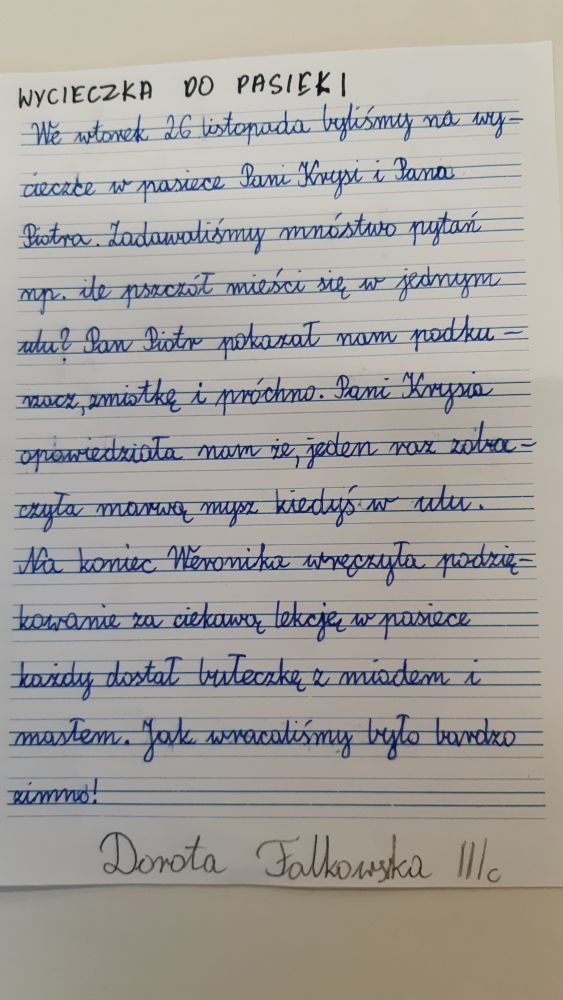 WYCIECZKA DO PASIEKI
We wtorek 26 listopada byliśmy na wy-
cieczce w pasiece Pani Krysi i Pana
Piotra. Zadawaliśmy mnóstwo pytań
np. ile pszczół mieści się w jednym
ulu? Pan Piotr pokazał nam podku-
rzacz, zmiotkę i próchno. Pani Krysia
opowiedziała nam że, jeden raz zoba-
czyła marwą mysz kiedyś w ulu.
Na koniec Weronika wręczyła podzię-
kowanie za ciekawą lekcję w pasiece
każdy dostał bułeczkę z miodem i
masłem. Jak wracaliśmy było bardzo
zimno!
Dorota Falkowska III/c